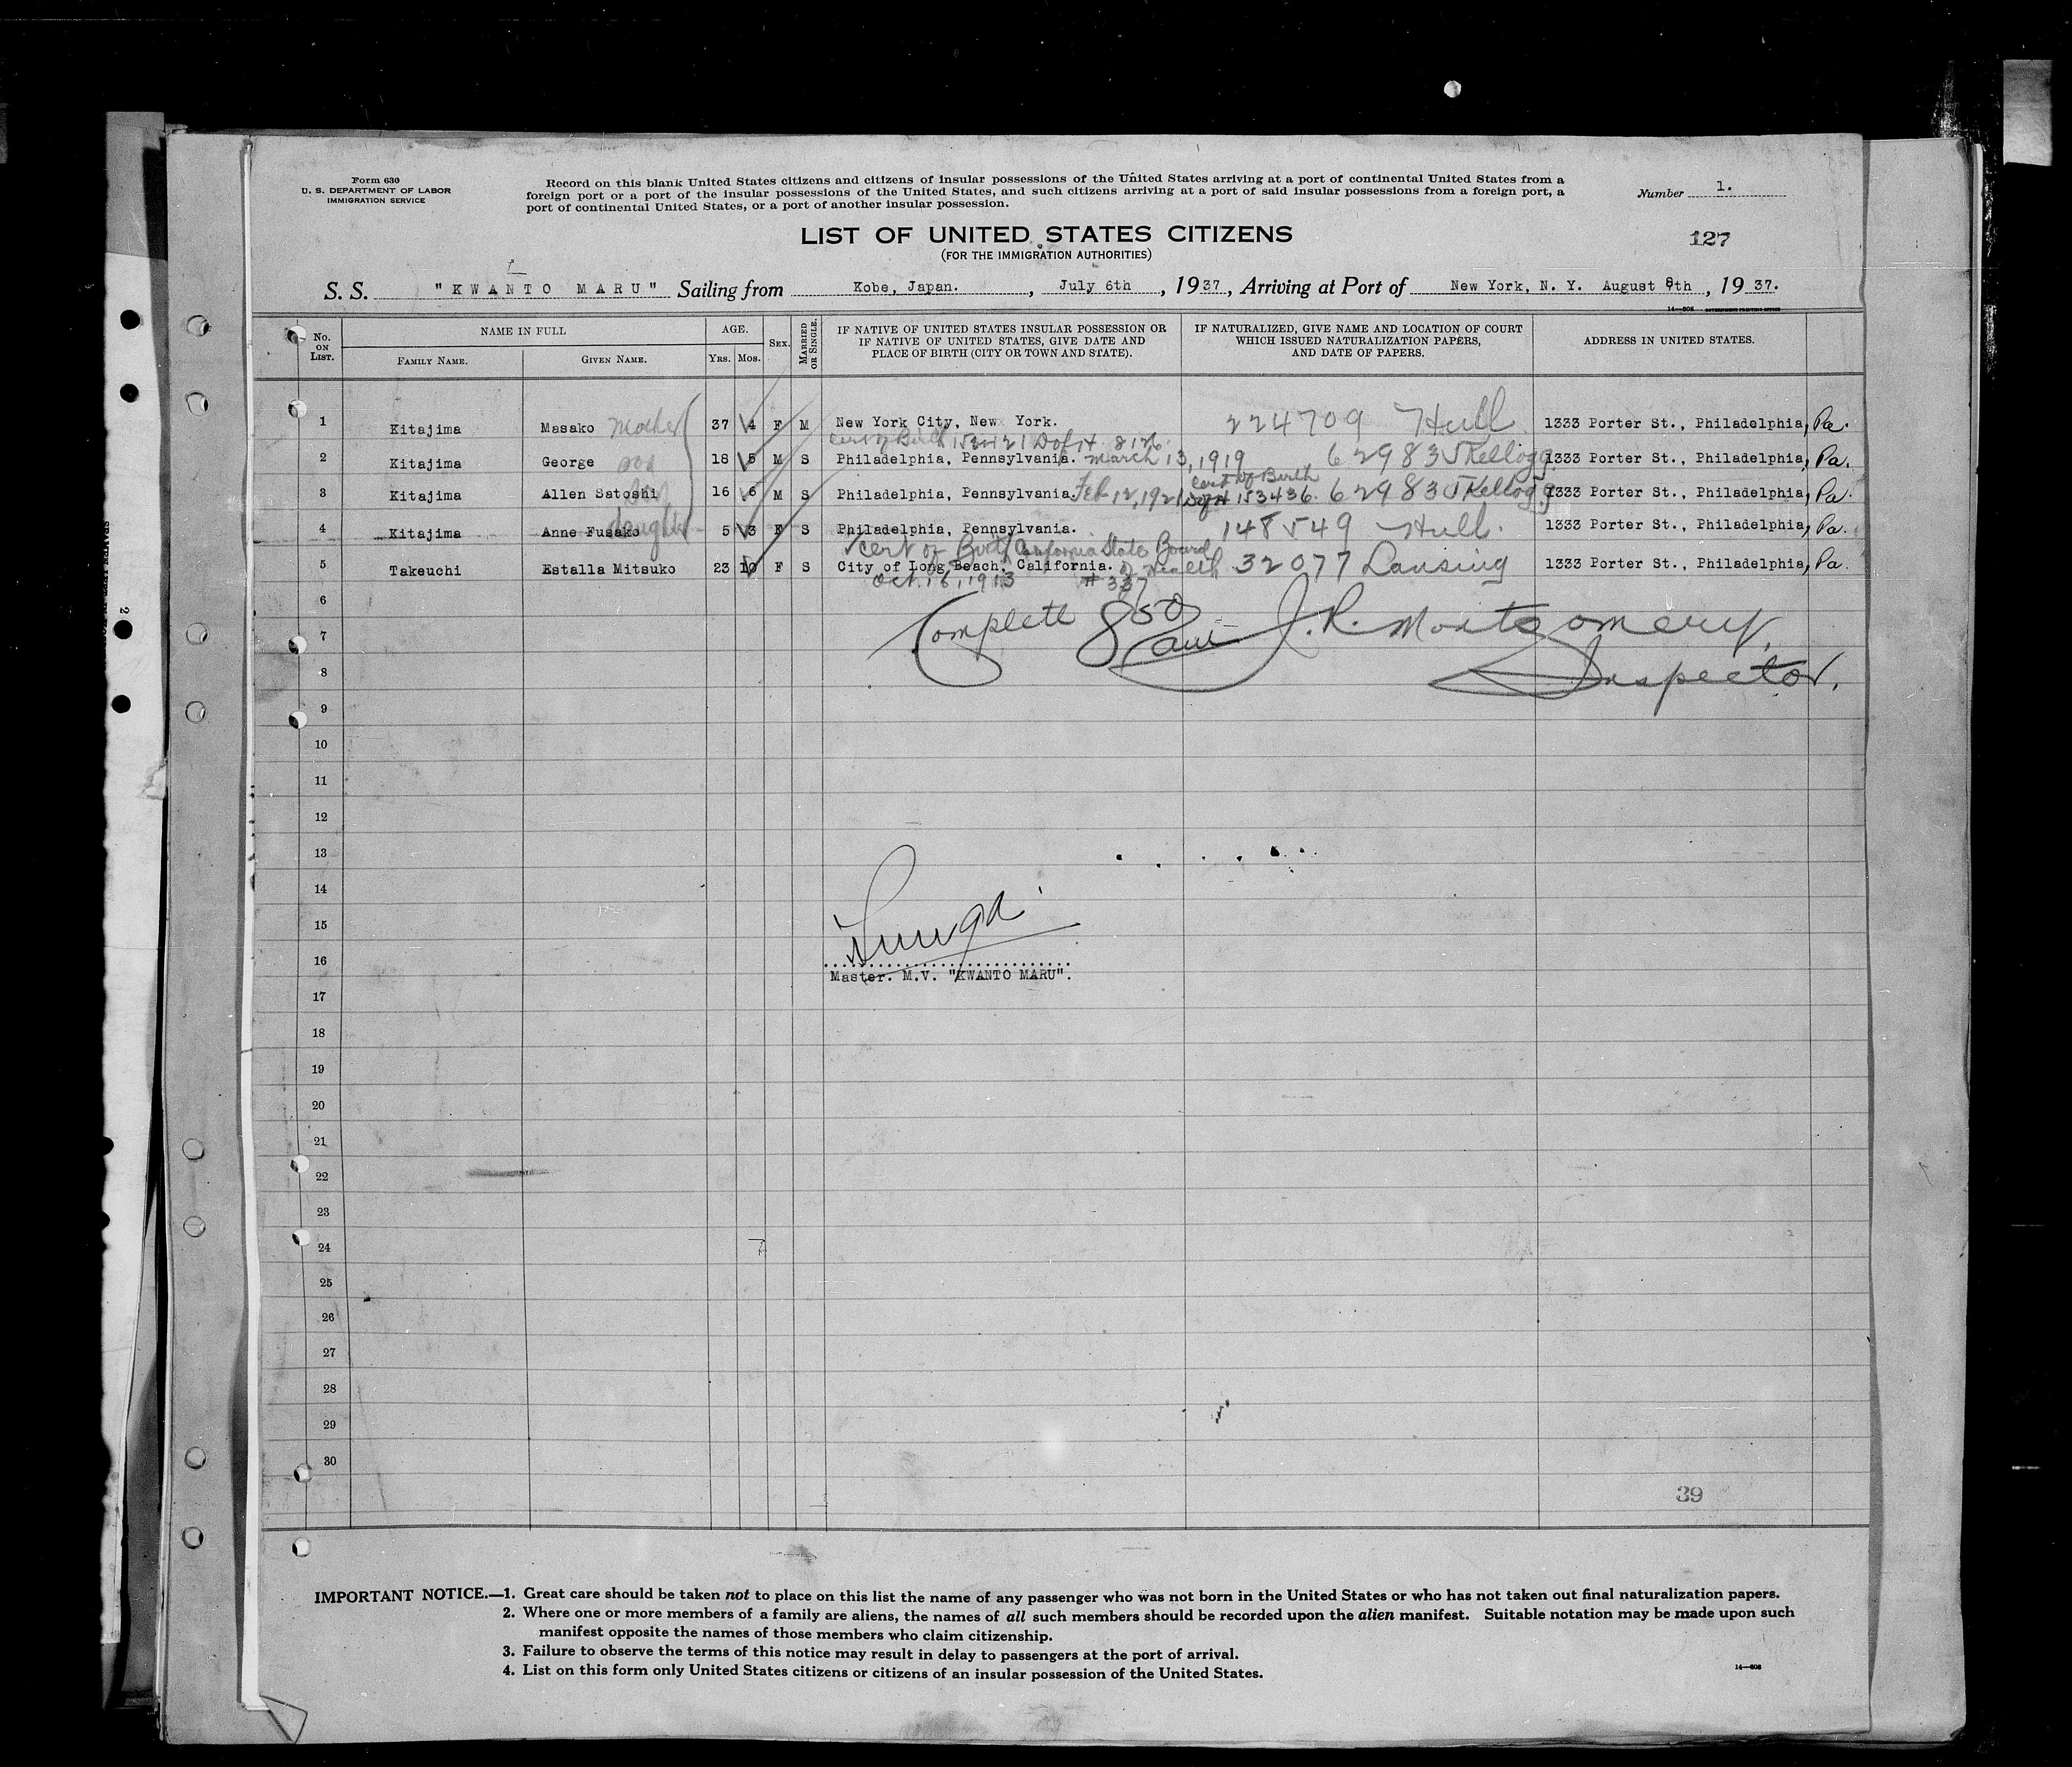 Form 630
U. S. DEPARTMENT OF LABOR
IMMIGRATION SERVICE
Record on this blank United States citizens and citizens of insular possessions of the United States arriving at a port of continental United States from a
foreign port or a port of the insular possessions of the United States, and such citizens arriving at a port of said insular possessions from a foreign port, a
port of continental United States, or a port of another insular possession.
Number 1.
LIST OF UNITED STATES CITIZENS
(FOR THE IMMIGRATION AUTHORITIES)
127
S. S. "KWANTO MARU" Sailing from Kobe, Japan. , July 6th , 1937, Arriving at Port of New York, N. Y. August 8th , 1937.
14—608 GOVERNMENT PRINTING OFFICE
No. ON LIST.
NAME IN FULL
FAMILY NAME.
GIVEN NAME.
AGE.
YRS. MOS.
SEX.
MARRIED OR SINGLE.
IF NATIVE OF UNITED STATES INSULAR POSSESSION OR
IF NATIVE OF UNITED STATES, GIVE DATE AND
PLACE OF BIRTH (CITY OR TOWN AND STATE).
IF NATURALIZED, GIVE NAME AND LOCATION OF COURT
WHICH ISSUED NATURALIZATION PAPERS,
AND DATE OF PAPERS.
ADDRESS IN UNITED STATES.
1 Kitajima Masako mother 37 4 F M New York City, New York. 224709 Hull 1333 Porter St., Philadelphia, Pa.
Cert of Birth
2 Kitajima George son 18 5 M S Philadelphia, Pennsylvania. March 13, 1919 62983 Kellogg 1333 Porter St., Philadelphia, Pa.
Cert of Birth
3 Kitajima Allen Satoshi son 16 6 M S Philadelphia, Pennsylvania. Feb 12, 1921 153436 62983 Kellogg 1333 Porter St., Philadelphia, Pa.
4 Kitajima Anne Fusako daughter 5 3 F S Philadelphia, Pennsylvania. 148549 Hull. 1333 Porter St., Philadelphia, Pa.
Cert of Birth California State Board
5 Takeuchi Estalla Mitsuko 23 10 F S City of Long Beach, California. of Health 32077 Lansing 1333 Porter St., Philadelphia, Pa.
Oct. 16, 1913 # 337
6
Complete 850 J. R. Montgomery,
7
Inspector.
8
9
10
11
12
13
14
15
16
Master. M.V. "KWANTO MARU".
17
18
19
20
21
22
23
24
25
26
27
28
29
30
39
IMPORTANT NOTICE.—1. Great care should be taken not to place on this list the name of any passenger who was not born in the United States or who has not taken out final naturalization papers.
2. Where one or more members of a family are aliens, the names of all such members should be recorded upon the alien manifest. Suitable notation may be made upon such
manifest opposite the names of those members who claim citizenship.
3. Failure to observe the terms of this notice may result in delay to passengers at the port of arrival.
4. List on this form only United States citizens or citizens of an insular possession of the United States.
14—608